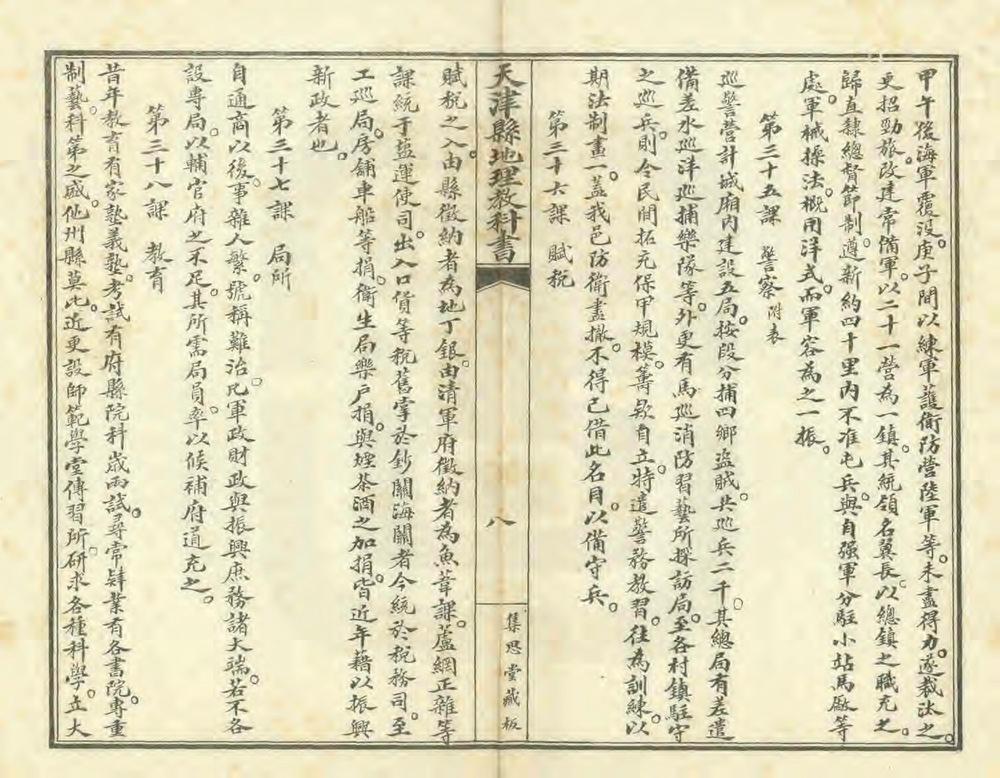 甲午後海軍覆沒。庚子間以練軍護衛防營陸軍等。未盡得力。遂裁汰之。
更招勁旅。改建常備軍。以二十一營為一鎮。其統領名翼長。以總鎮之職充之。
歸直隸總督節制。遵新約四十里內不准屯兵。與自强軍分駐小站馬廠等
處。軍械操法。概用洋式。而軍容為之一振。
第三十五課 警察 附表
巡警營計城廂內建設五局。按段分捕四鄉盜賊。共巡兵二千。其總局有差遣
備差水巡洋巡捕樂隊等。外更有馬巡消防習藝所探訪局。至各村鎮駐守
之巡兵。則令民間拓充保甲規模。籌欵自立。特遣警務教習。往為訓練。以
期法制畫一。蓋我邑防衛盡撤。不得已借此名目。以備守兵。
第三十六課 賦稅
天津縣地理教科書
八
集思堂藏板
賦稅之入。由縣徵納者為地丁銀。由清軍府徵納者為魚葦課。蘆綱正雜等
課統于盐運使司。出入口貨等稅舊掌於鈔關海關者今統於稅務司。至
工巡局。房舖車船等捐。衛生局樂户捐。與煙茶酒之加捐。皆近年藉以振興
新政者也。
第三十七課 局所
自通商以後。事雜人繁。號稱難治。凡軍政財政與振興庶務諸大端。若不各
設專局。以輔官府之不足。其所需局員。率以候補府道充之。
第三十八課 教育
昔年教育有家塾義塾。考試有府縣院科歲兩試。尋常肄業有各書院。專重
制藝。科第之盛。他州縣莫比。近更設師範學堂傳習所。研求各種科學。立大